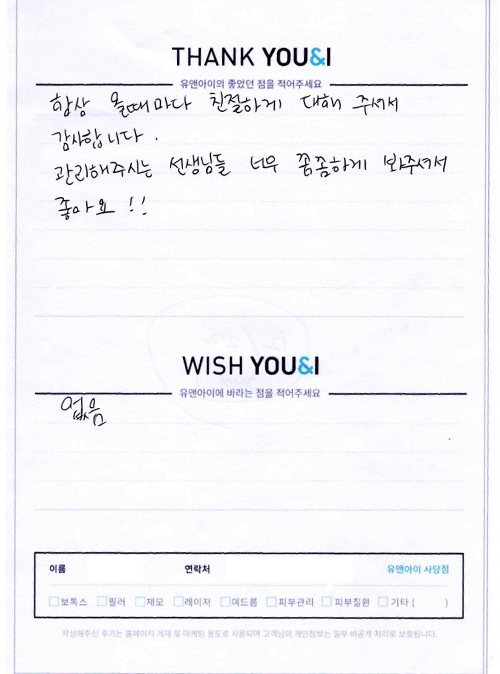 THANK YOU&I
유앤아이의 좋았던 점을 적어주세요
항상 올때마다 친절하게 대해 주셔서
감사합니다.
관리해주시는 선생님들 너무 꼼꼼하게 봐주셔서
좋아요!!
WISH YOU&I
유앤아이에 바라는 점을 적어주세요
없음
이름 연락처 유앤아이 사당점
보톡스 필러 제모 레이저 여드름 피부관리 피부질환 기타 ( )
작성해주신 후기는 홈페이지 게재 및 마케팅 용도로 사용되며 고객님의 개인정보는 일부 비공개 처리로 보호됩니다.